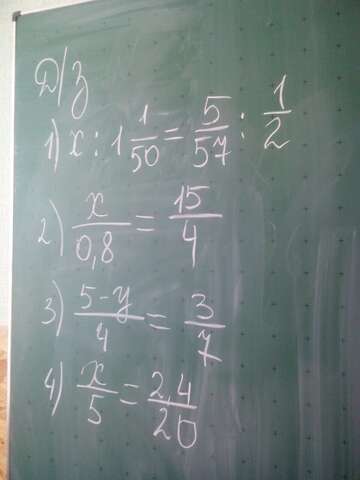 Д/з
1) x : 1 1/50 = 5/57 : 1/2
2) x/0,8 = 15/4
3) 5-y/4 = 3/7
4) x/5 = 2,4/20